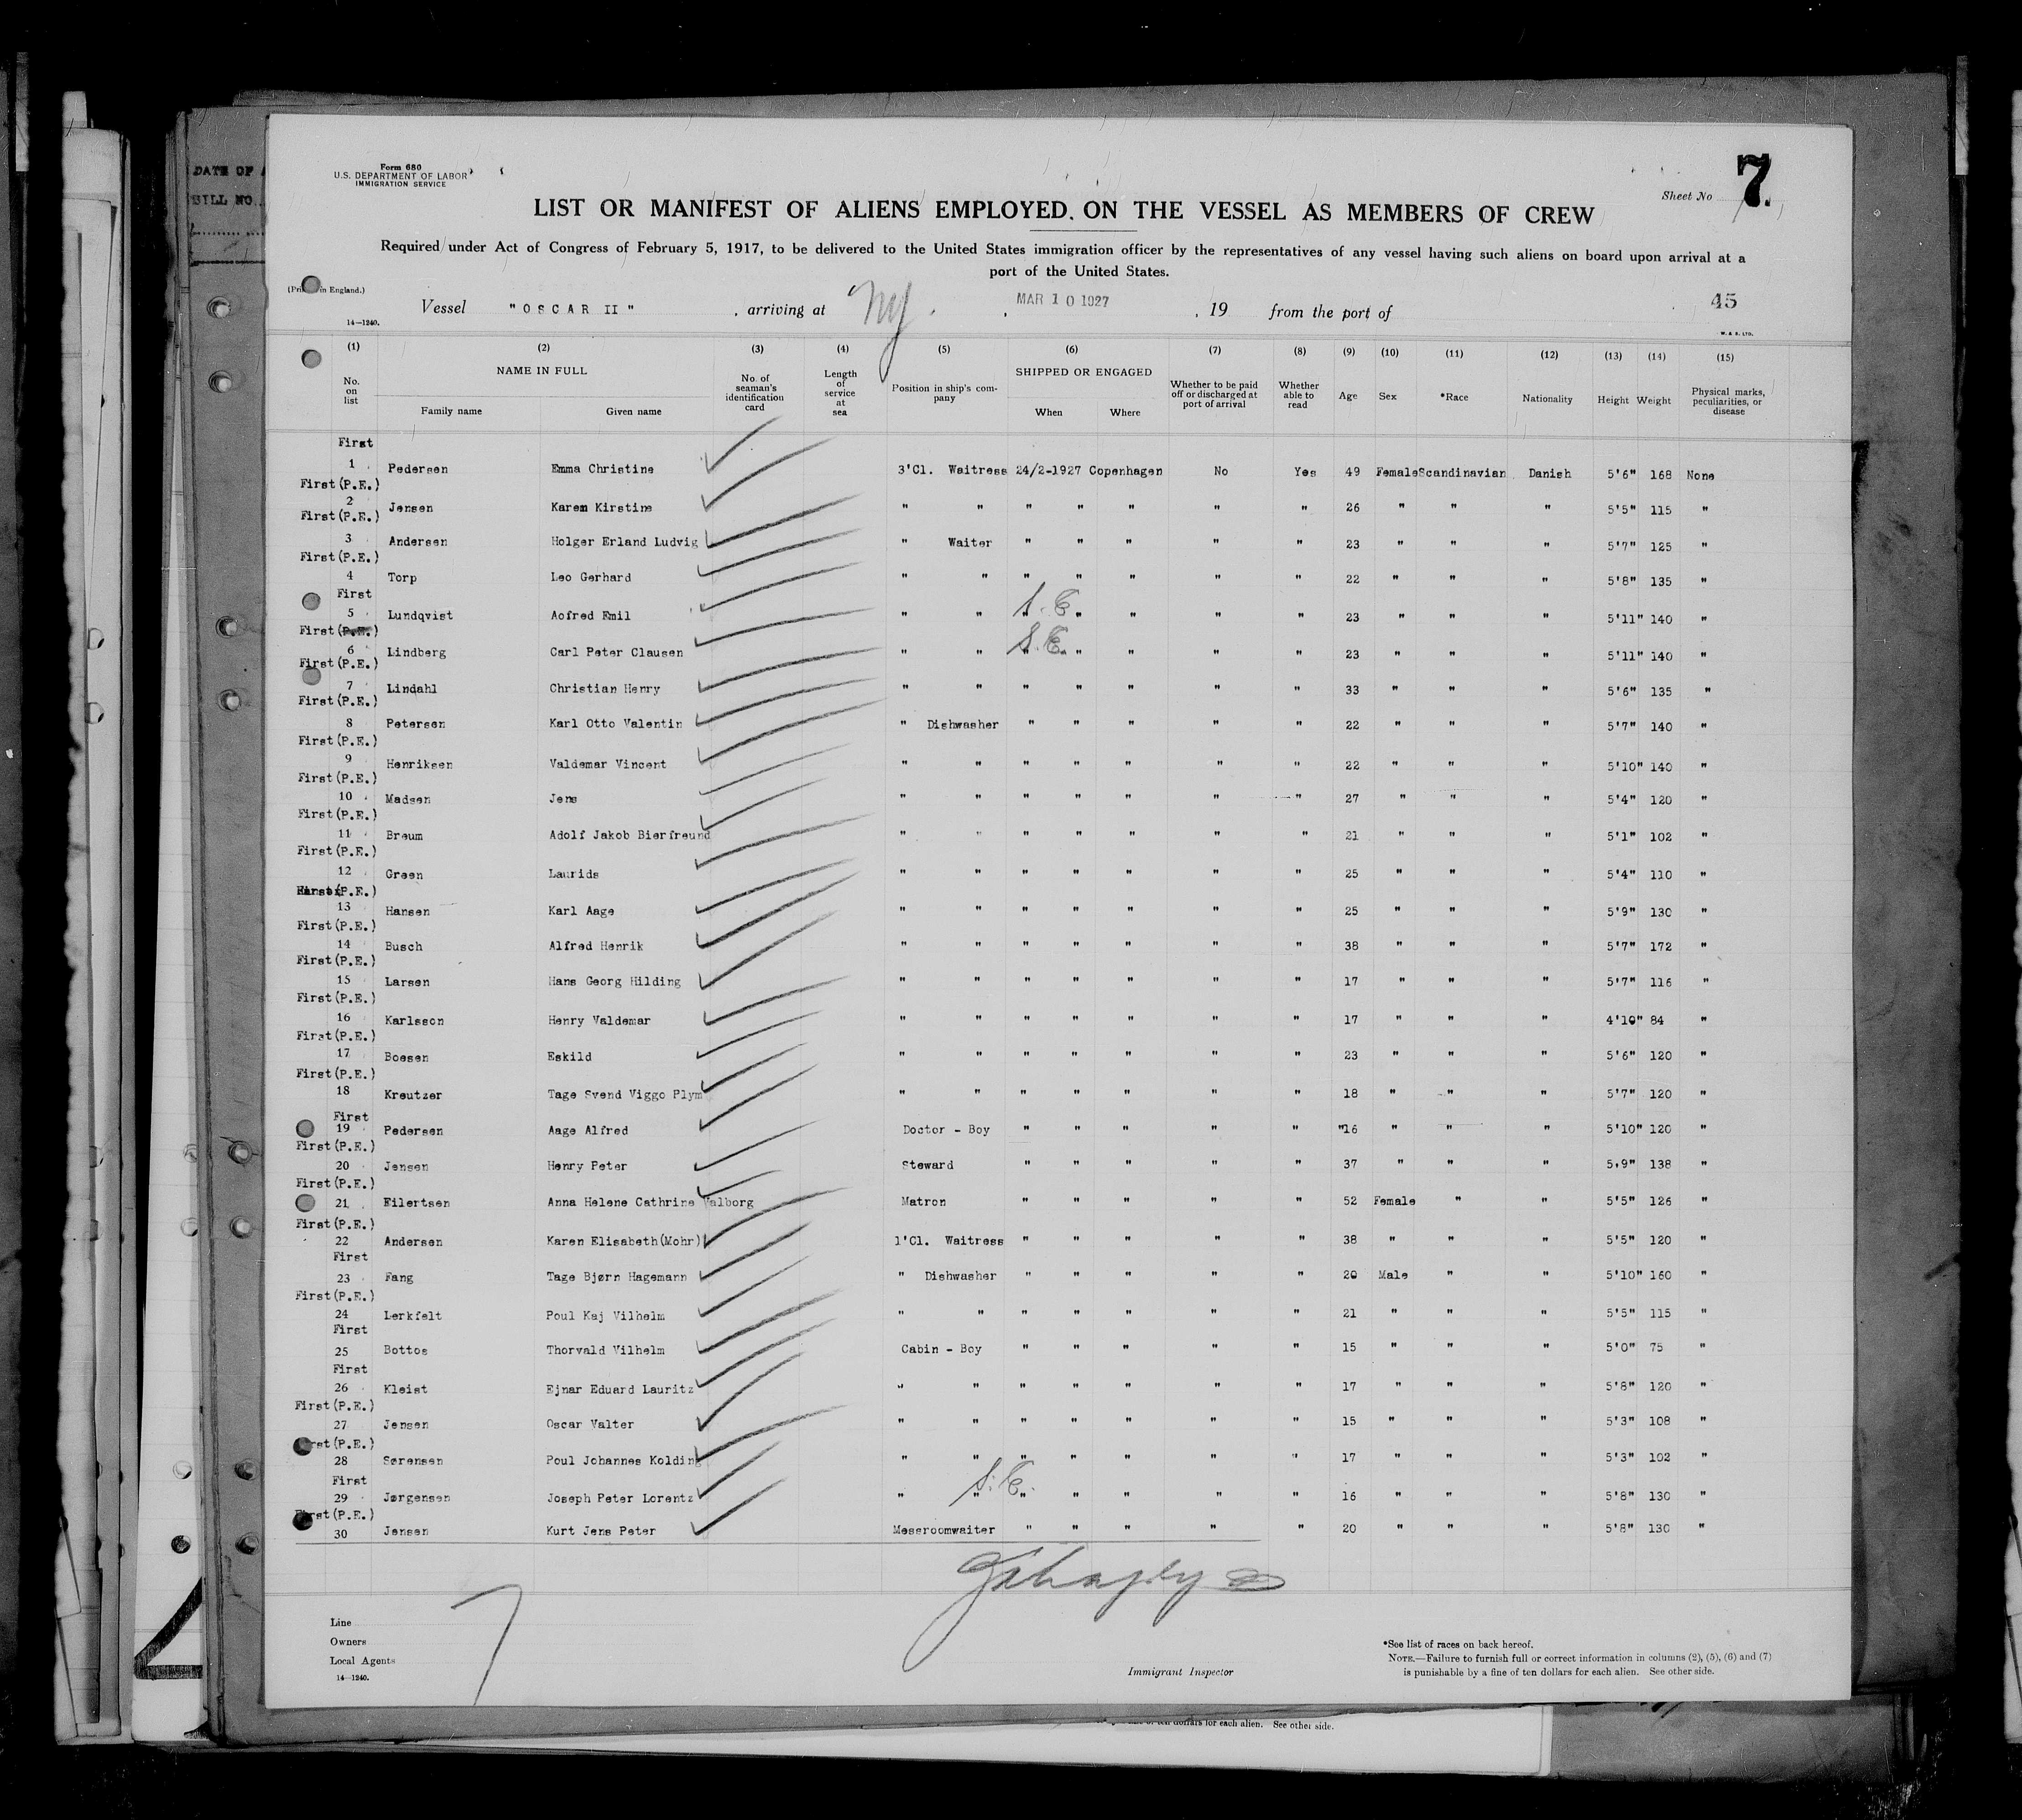 DATE OF A
BILL NO.
Form 680
U.S. DEPARTMENT OF LABOR
IMMIGRATION SERVICE
Sheet No 7.
LIST OR MANIFEST OF ALIENS EMPLOYED ON THE VESSEL AS MEMBERS OF CREW
Required under Act of Congress of February 5, 1917, to be delivered to the United States immigration officer by the representatives of any vessel having such aliens on board upon arrival at a
port of the United States.
in England.)
Vessel "OSCAR II" , arriving at NY. , MAR 10 1927 , 19 from the port of 45
14—1240. W. & S. LTD.
(1) (2) (3) (4) (5) (6) (7) (8) (9) (10) (11) (12) (13) (14) (15)
No. on list NAME IN FULL Family name Given name No. of seaman's identification card Length of service at sea Position in ship's company SHIPPED OR ENGAGED When Where Whether to be paid off or discharged at port of arrival Whether able to read Age Sex *Race Nationality Height Weight Physical marks, peculiarities, or disease
First
1 Pedersen Emma Christine 3'Cl. Waitress 24/2-1927 Copenhagen No Yes 49 Female Scandinavian Danish 5'6" 168 None
First(P.E.)
2 Jensen Karen Kirstine " " " " " " " 26 " " " 5'5" 115 "
First(P.E.)
3 Andersen Holger Erland Ludvig " Waiter " " " " " 23 " " " 5'7" 125 "
First(P.E.)
4 Torp Leo Gerhard " " " " " " " 22 " " " 5'8" 135 "
First
5 Lundqvist Aofred Emil " " S.E. " " " " " 23 " " " 5'11" 140 "
First(P.E.)
6 Lindberg Carl Peter Clausen " " S.E. " " " " " 23 " " " 5'11" 140 "
First(P.E.)
7 Lindahl Christian Henry " " " " " " " 33 " " " 5'6" 135 "
First(P.E.)
8 Petersen Karl Otto Valentin " Dishwasher " " " " " 22 " " " 5'7" 140 "
First(P.E.)
9 Henriksen Valdemar Vincent " " " " " " " 22 " " " 5'10" 140 "
First(P.E.)
10 Madsen Jens " " " " " " " 27 " " " 5'4" 120 "
First(P.E.)
11 Breum Adolf Jakob Bierfreund " " " " " " " 21 " " " 5'1" 102 "
First(P.E.)
12 Green Laurids " " " " " " " 25 " " " 5'4" 110 "
(P.E.)
13 Hansen Karl Aage " " " " " " " 25 " " " 5'9" 130 "
First(P.E.)
14 Busch Alfred Henrik " " " " " " " 38 " " " 5'7" 172 "
First(P.E.)
15 Larsen Hans Georg Hilding " " " " " " " 17 " " " 5'7" 116 "
First(P.E.)
16 Karlsson Henry Valdemar " " " " " " " 17 " " " 4'10" 84 "
First(P.E.)
17 Boesen Eskild " " " " " " " 23 " " " 5'6" 120 "
First(P.E.)
18 Kreutzer Tage Svend Viggo Plym " " " " " " " 18 " " " 5'7" 120 "
First
19 Pedersen Aage Alfred Doctor - Boy " " " " " "16 " " " 5'10" 120 "
First(P.E.)
20 Jensen Henry Peter Steward " " " " " 37 " " " 5.9" 138 "
First(P.E.)
21 Eilertsen Anna Helene Cathrine Valborg Matron " " " " " 52 Female " " 5'5" 126 "
First(P.E.)
22 Andersen Karen Elisabeth(Mohr) 1'Cl. Waitress " " " " " 38 " " " 5'5" 120 "
First
23 Fang Tage Bjørn Hagemann " Dishwasher " " " " " 20 Male " " 5'10" 160 "
First(P.E.)
24 Lerkfelt Poul Kaj Vilhelm " " " " " " " 21 " " " 5'5" 115 "
First
25 Bottos Thorvald Vilhelm Cabin - Boy " " " " " 15 " " " 5'0" 75 "
First
26 Kleist Ejnar Eduard Lauritz " " " " " " " 17 " " " 5'8" 120 "
First(P.E.)
27 Jensen Oscar Valter " " " " " " " 15 " " " 5'3" 108 "
First(P.E.)
28 Sørensen Poul Johannes Kolding " " " " " " " 17 " " " 5'3" 102 "
First
29 Jørgensen Joseph Peter Lorentz " " S.E. " " " " " 16 " " " 5'8" 130 "
First(P.E.)
30 Jensen Kurt Jens Peter Messroomwaiter " " " " " 20 " " " 5'8" 130 "
7
Line
Owners
Local Agents
14—1240.
Immigrant Inspector
*See list of races on back hereof.
NOTE.—Failure to furnish full or correct information in columns (2), (5), (6) and (7)
is punishable by a fine of ten dollars for each alien. See other side.
of ten dollars for each alien. See other side.